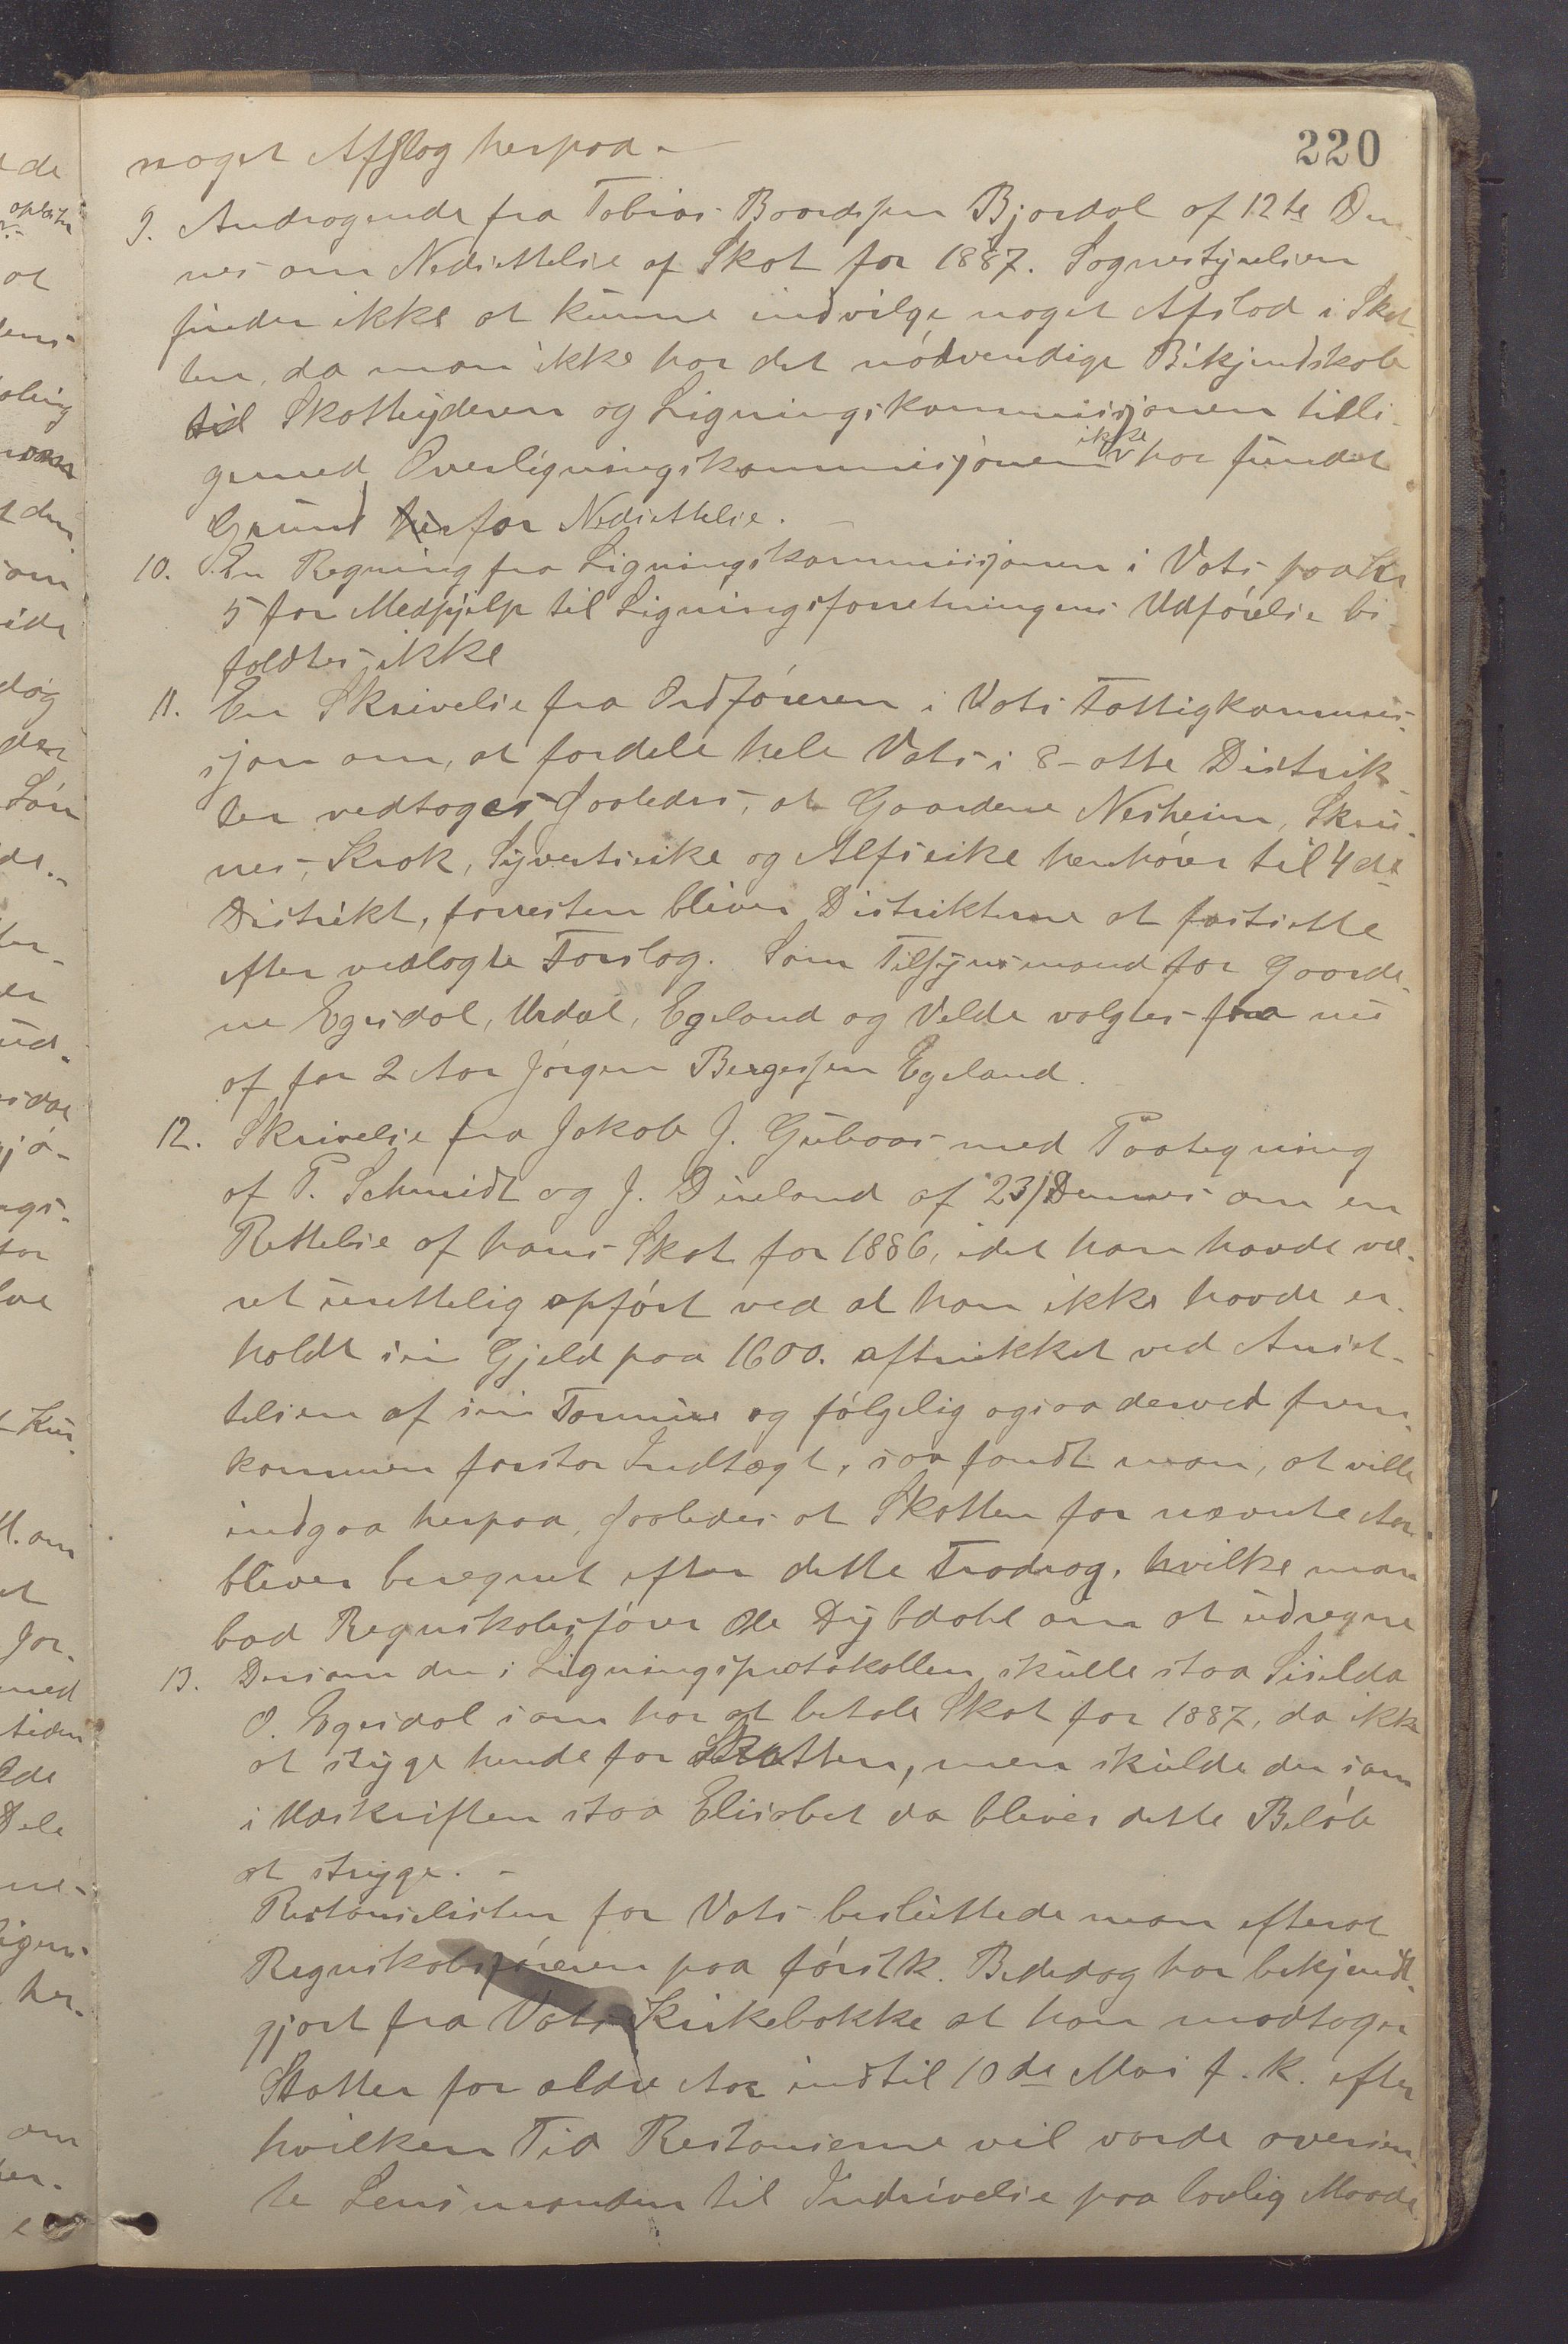 220
noget Afslag herpaa. —
9. Andragende fra Tobias Baardsen Bjordal af 12te Den-
nes om Nedsettelse af Skat for 1887. Sognestyrelsen
finder ikke at kunne indvilge noget Afslad i Skat-
ten, da man ikke har det nødvendige Bekjendskab
til Skatteyderen og Ligningskommissjonen tilli-
gemed Overligningskommisjonen ikke har fundet
Grund for Nedsettelse. —
10. En Regning fra Ligningskommissjonen i Vats paa Kr
5 for Medhjelp til Ligningsforretningens Udførelse bi-
faldtes ikke
11. En Skrivelse fra Ordføreren i Vats Fattigkommis-
sjon om, at fordele hele Vats i 8 - otte Distrik-
ter vedtoges saaledes, at Gaardene Nesheim, Skru-
nes, Krok, Syvertseike og Alfseike henhører til 4de
Distrikt, forresten bliver Distrikterne at fastsette
efter vedlagte Forslag. Som Tilsynsmand for Gaarde-
ne Egesdal, Urdal, Egeland og Velde valgtes fra nu
af for 2 Aar Jørgen Bergesen Egeland.
12. Skrivelse fra Jakob J. Gubaas med Paategning
af P. Schmidt og J. Dueland af 23/ Dennes om en
Rettelse af hans Skat for 1886, idet han havde væ-
ret urettelig opført ved at han ikke havde er-
holdt sin Gjeld paa 1600. aftrukket ved Anset-
telsen af sin Formue og følgelig ogsaa derved frem-
kommen forstor Indtægt, saa fandt man, at ville
indgaa herpaa, saaledes at Skatten for nævnte Aar
bliver beregnet efter dette Fradrag, hvilke man
bad Regnskabsfører Ole Dybdahl om at udregne
13. Dersom der i Ligningsprotokollen skulle staa Siselda
O. Egesdal som har at betale Skat for 1887, da ikke
at stryge hende for Skatten, men skulde der som
i Udskriften staa Elisabet da bliver dette Beløb
at stryge. —
Restanselisten for Vats besluttede man efterat
Regnskabsføreren paa førstk. Bededag har bekjendt-
gjort fra Vats Kirkebakke at han modtager
Skatter for ældre Aar indtil 10de Mai f. k. efter
hvilken Tid Restanserne vil vorde oversen-
te Lensmanden til Indrivelse paa lovlig Maade